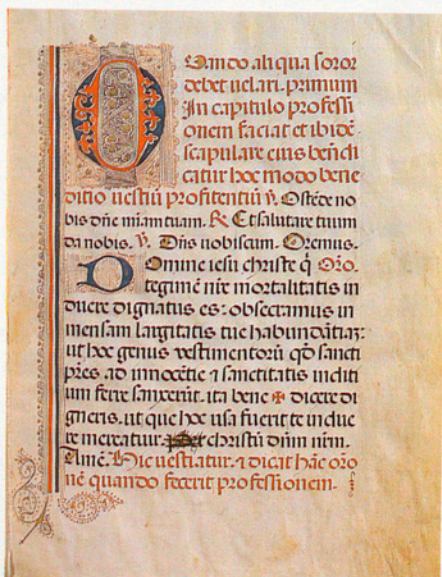 Quando aliqua soror
debet uelari. primum
In capitulo professi
onem faciat et ibidē
scapulare eius bēndi
catur hoc modo bene
ditio uestiū profitentiū ℣. Ostēde no
bis dñe miam tuam. ℟ Et salutare tuum
da nobis. ℣. Dñs uobiscum. Oremus.
Domine iesu christe q̄ Oro.
tegimē nrē mortalitatis in
duere dignatus es: obsecramus in
mensam largitatis tue habundātiaz:
ut hoc genus vestimentorū qd̄ sancti
pr̄es. ad innocētie ⁊ sanctitatis inditi
um ferre sanxerūt. ita bene ✠ dicere di
gneris. ut que hoc usa fuerit te indue
re mereatur. christū dn̄m nr̄m.
Amē. Hic uestiatur. ⁊ dicat hāc oro
nē quando fecerit professionem.